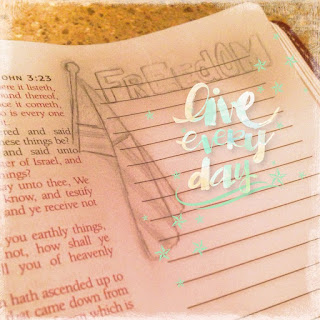 OHN 3:23
ere it listeth,
ound thereof,
ce it cometh,
o is every one
t.
red and said
these things be?
d and said unto
ter of Israel, and
things?
ay unto thee, We
know, and testify
and ye receive not
you earthly things,
not, how shall ye
ll you of heavenly
hath ascended up to
that came down from
which is
FREEdOM
live
every
day